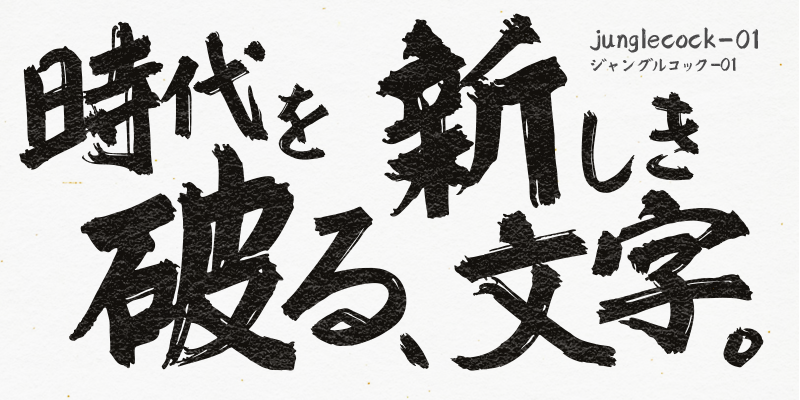 時代を
破る、
新しき
文字。
junglecock-01
ジャングルコック-01